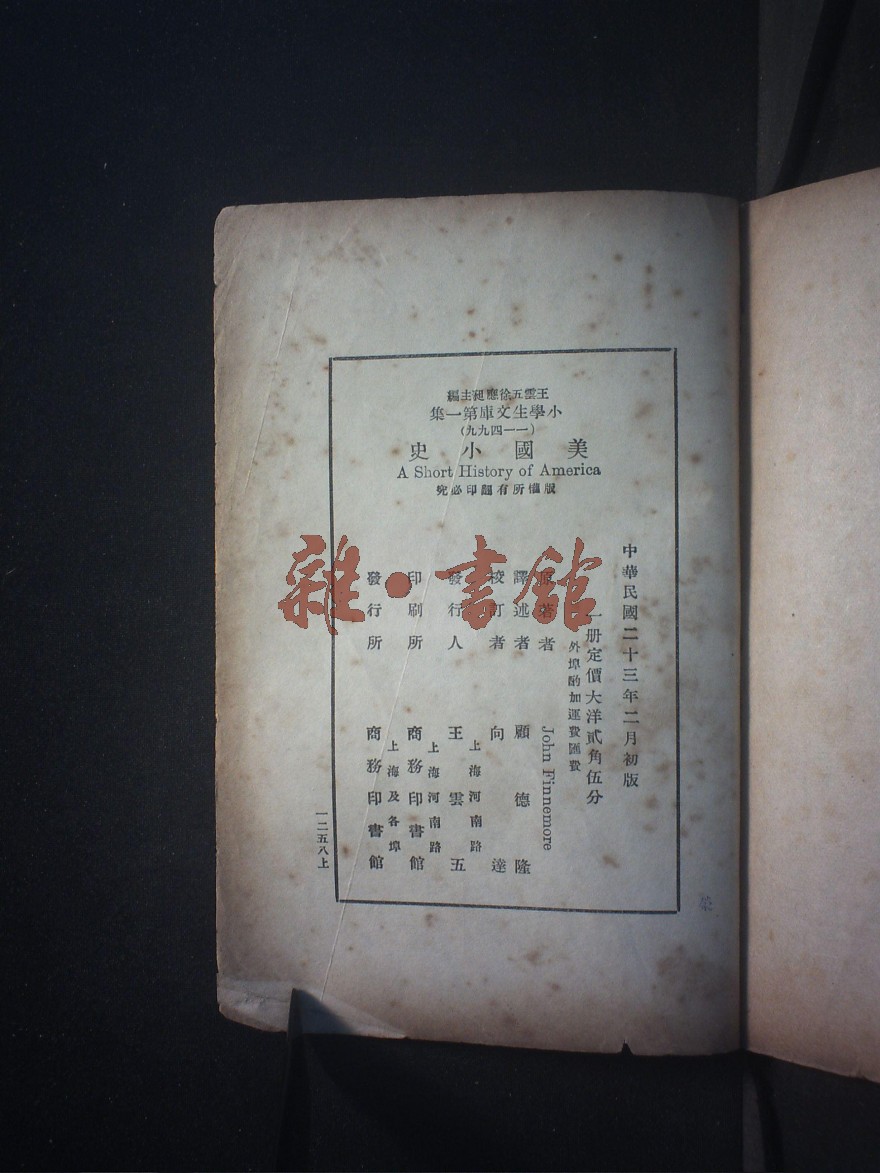 王雲五徐應昶主編
小學生文庫第一集
(一—四九九)
美國小史
A Short History of America
版權所有翻印必究
中華民國二十三年二月初版
一册定價大洋貳角伍分
外埠酌加運費匯費
原著者 John Finnemore
譯述者 顧德隆
校訂者 向達
上海河南路
發行人 王雲五
上海河南路
印刷所 商務印書館
上海及各埠
發行所 商務印書館
一二五八上
雜·書館